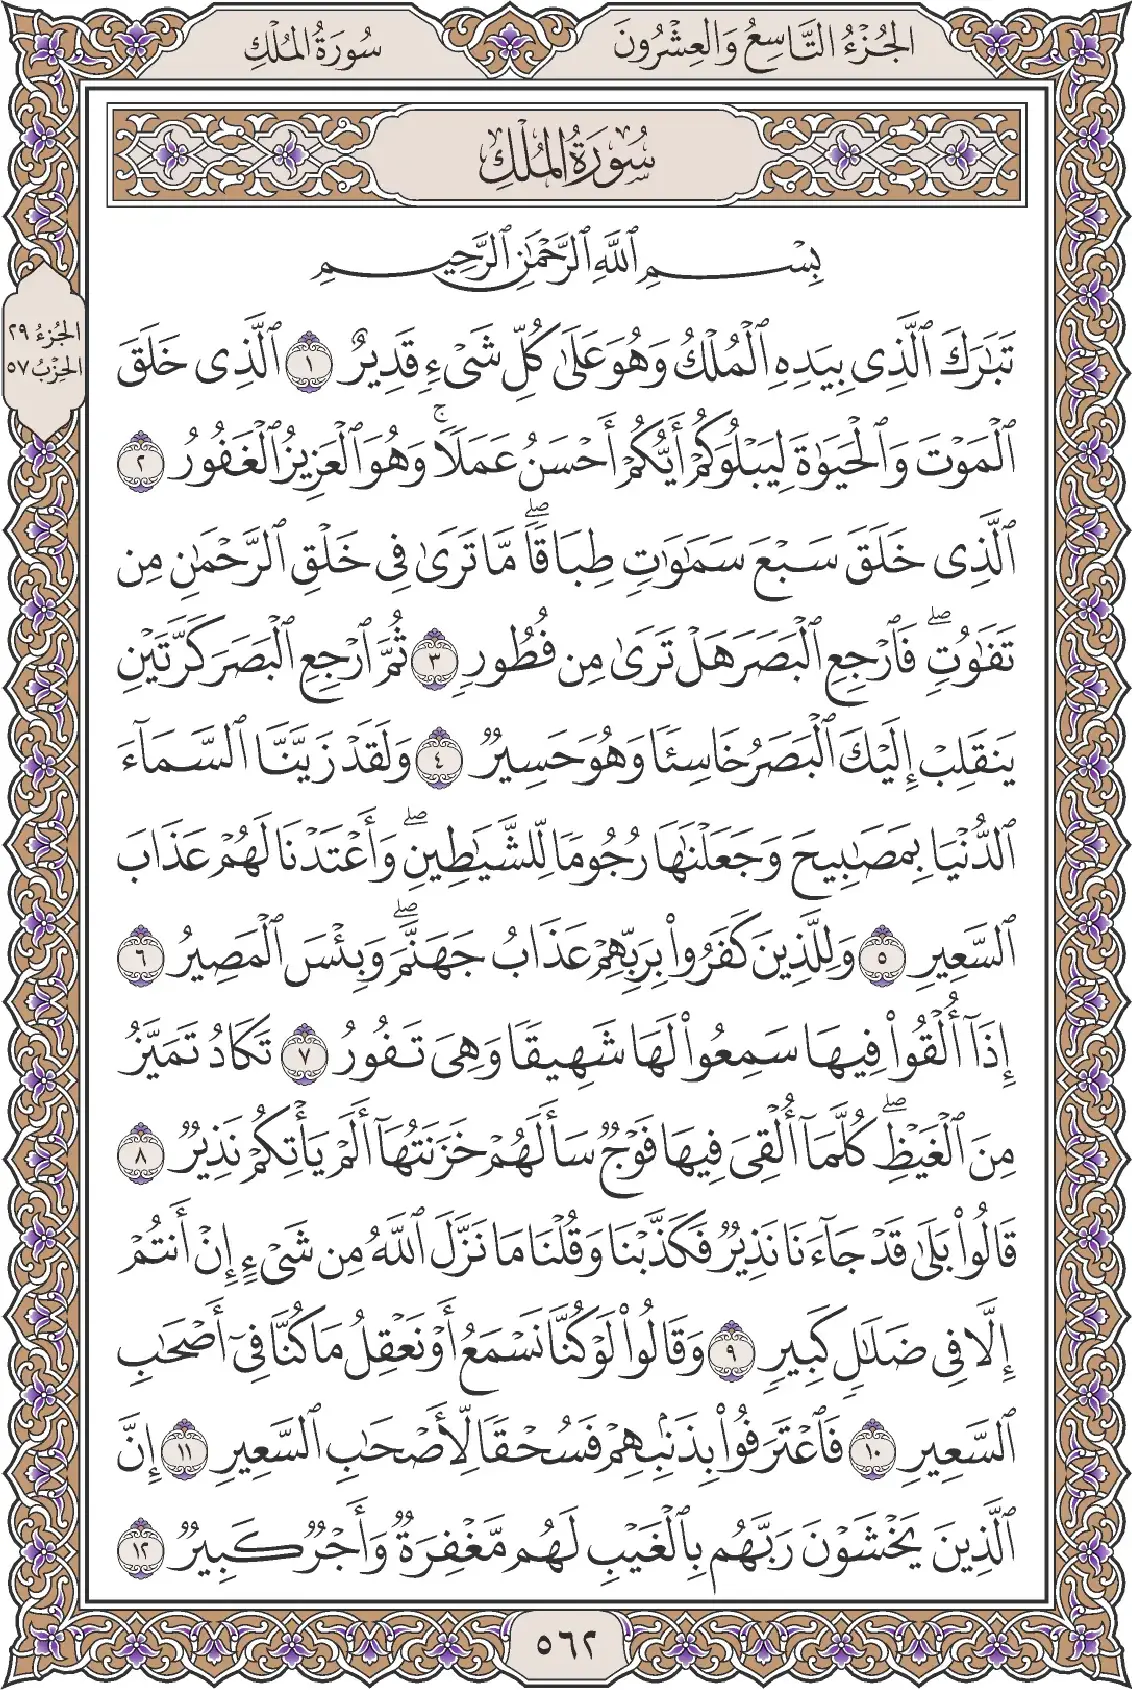 الجُزْءُ التَّاسِعُ وَالعِشْرُونَ
سُورَةُ المُلْكِ
سُورَةُ المُلْكِ
بِسْمِ ٱللَّهِ ٱلرَّحْمَٰنِ ٱلرَّحِيمِ
تَبَٰرَكَ ٱلَّذِى بِيَدِهِ ٱلْمُلْكُ وَهُوَ عَلَىٰ كُلِّ شَىْءٍ قَدِيرٌ ١ ٱلَّذِى خَلَقَ
ٱلْمَوْتَ وَٱلْحَيَوٰةَ لِيَبْلُوَكُمْ أَيُّكُمْ أَحْسَنُ عَمَلًاۚ وَهُوَ ٱلْعَزِيزُ ٱلْغَفُورُ ٢
ٱلَّذِى خَلَقَ سَبْعَ سَمَٰوَٰتٍ طِبَاقًاۖ مَّا تَرَىٰ فِى خَلْقِ ٱلرَّحْمَٰنِ مِن
تَفَٰوُتٍۖ فَٱرْجِعِ ٱلْبَصَرَ هَلْ تَرَىٰ مِن فُطُورٍ ٣ ثُمَّ ٱرْجِعِ ٱلْبَصَرَ كَرَّتَيْنِ
يَنقَلِبْ إِلَيْكَ ٱلْبَصَرُ خَاسِئًا وَهُوَ حَسِيرٌ ٤ وَلَقَدْ زَيَّنَّا ٱلسَّمَآءَ
ٱلدُّنْيَا بِمَصَٰبِيحَ وَجَعَلْنَٰهَا رُجُومًا لِّلشَّيَٰطِينِۖ وَأَعْتَدْنَا لَهُمْ عَذَابَ
ٱلسَّعِيرِ ٥ وَلِلَّذِينَ كَفَرُوا۟ بِرَبِّهِمْ عَذَابُ جَهَنَّمَۖ وَبِئْسَ ٱلْمَصِيرُ ٦
إِذَآ أُلْقُوا۟ فِيهَا سَمِعُوا۟ لَهَا شَهِيقًا وَهِىَ تَفُورُ ٧ تَكَادُ تَمَيَّزُ
مِنَ ٱلْغَيْظِۖ كُلَّمَآ أُلْقِىَ فِيهَا فَوْجٌ سَأَلَهُمْ خَزَنَتُهَآ أَلَمْ يَأْتِكُمْ نَذِيرٌ ٨
قَالُوا۟ بَلَىٰ قَدْ جَآءَنَا نَذِيرٌ فَكَذَّبْنَا وَقُلْنَا مَا نَزَّلَ ٱللَّهُ مِن شَىْءٍ إِنْ أَنتُمْ
إِلَّا فِى ضَلَٰلٍ كَبِيرٍ ٩ وَقَالُوا۟ لَوْ كُنَّا نَسْمَعُ أَوْ نَعْقِلُ مَا كُنَّا فِىٓ أَصْحَٰبِ
ٱلسَّعِيرِ ١٠ فَٱعْتَرَفُوا۟ بِذَنۢبِهِمْ فَسُحْقًا لِّأَصْحَٰبِ ٱلسَّعِيرِ ١١ إِنَّ
ٱلَّذِينَ يَخْشَوْنَ رَبَّهُم بِٱلْغَيْبِ لَهُم مَّغْفِرَةٌ وَأَجْرٌ كَبِيرٌ ١٢
الجُزْءُ ٢٩
الحِزْبُ ٥٧
٥٦٢